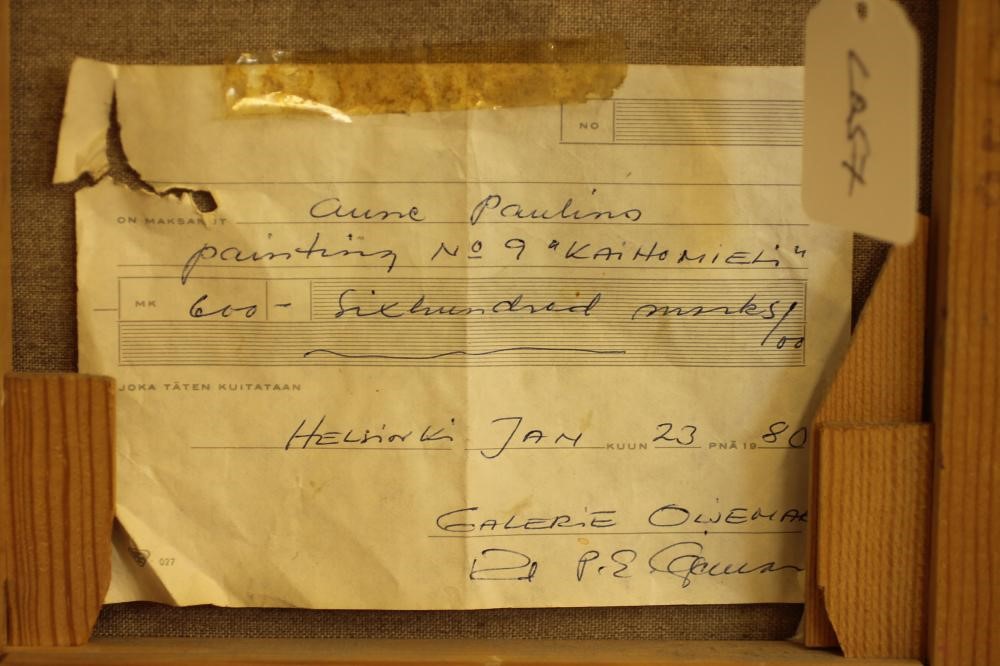 LAST
NO
ON MAKSANUT Aune Paulino
painting No 9 "KAIHOMIELI"
MK 600- Sixhundred marks/00
JOKA TÄTEN KUITATAAN
HELSINKI JAN KUUN 23 PNÄ 1980
GALERIE
P.E
027